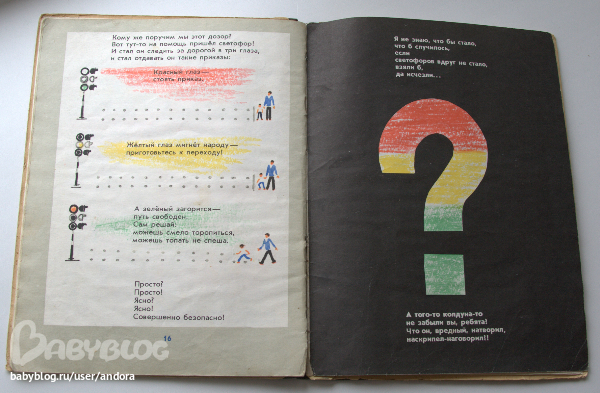 Кому же поручим мы этот дозор?
Вот тут-то на помощь пришёл светофор!
И стал он следить за дорогой в три глаза,
и стал отдавать он такие приказы:
Красный глаз—
стоять приказ.
Жёлтый глаз мигнёт народу—
приготовьтесь к переходу!
А зелёный загорится—
путь свободен.
Сам решай:
можешь смело торопиться,
можешь топать не спеша.
Просто?
Просто!
Ясно?
Ясно!
Совершенно безопасно!
16
Я не знаю, что бы стало,
что б случилось,
если
светофоров вдруг не стало,
взяли б,
да исчезли...
?
А того-то колдуна-то
не забыли вы, ребята!
Что он, вредный, натворил,
нескрипел-наговорил!!
BABYBLOG
babyblog.ru/user/andora